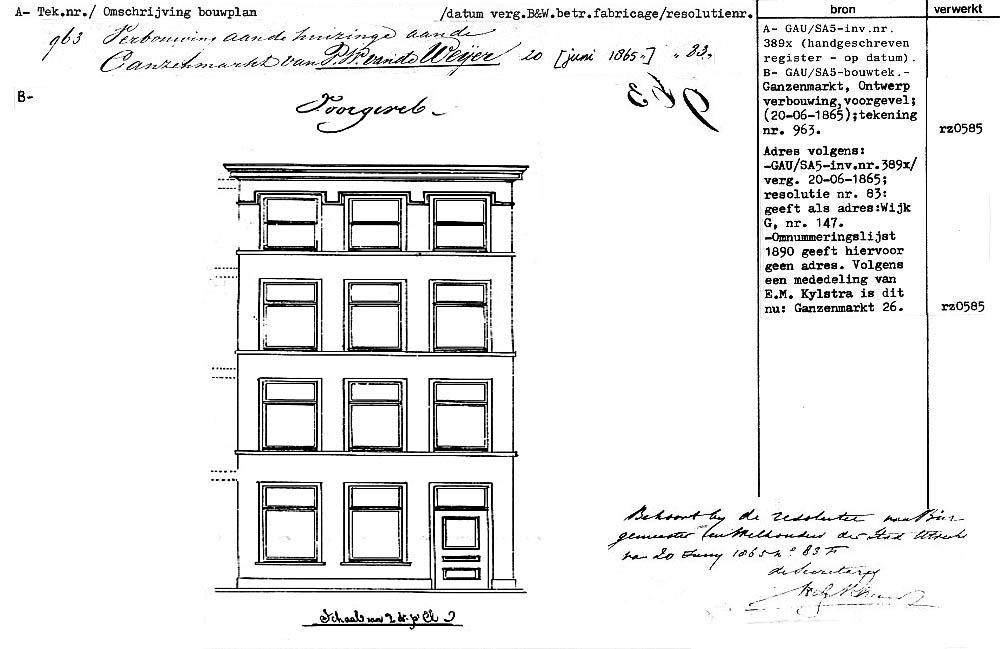 A- Tek.nr./ Omschrijving bouwplan /datum verg.B&W.betr.fabricage/resolutienr.
bron
verwerkt
963 Verbouwing aande huizinge aande
Ganzenmarkt van P.W. van de Weijer 20 [juni 1865„] „ 83„
B-
Voorgevel
963
A- GAU/SA5-inv.nr.
389x (handgeschreven
register - op datum).
B- GAU/SA5-bouwtek.-
Ganzenmarkt, Ontwerp
verbouwing,voorgevel;
(20-06-1865);tekening
nr. 963.
rz0585
Adres volgens:
-GAU/SA5-inv.nr.389x/
verg. 20-06-1865;
resolutie nr. 83:
geeft als adres:Wijk
G, nr. 147.
-Omnummeringslijst
1890 geeft hiervoor
geen adres. Volgens
een mededeling van
E.M. Kylstra is dit
nu: Ganzenmarkt 26.
rz0585
Behoort bij de resolutie van Bur-
gemeester en Wethouders der Stad Utrecht
van 20 Juny 1865 n° 83
de Secretaris
Schaal van 2 d: pr El